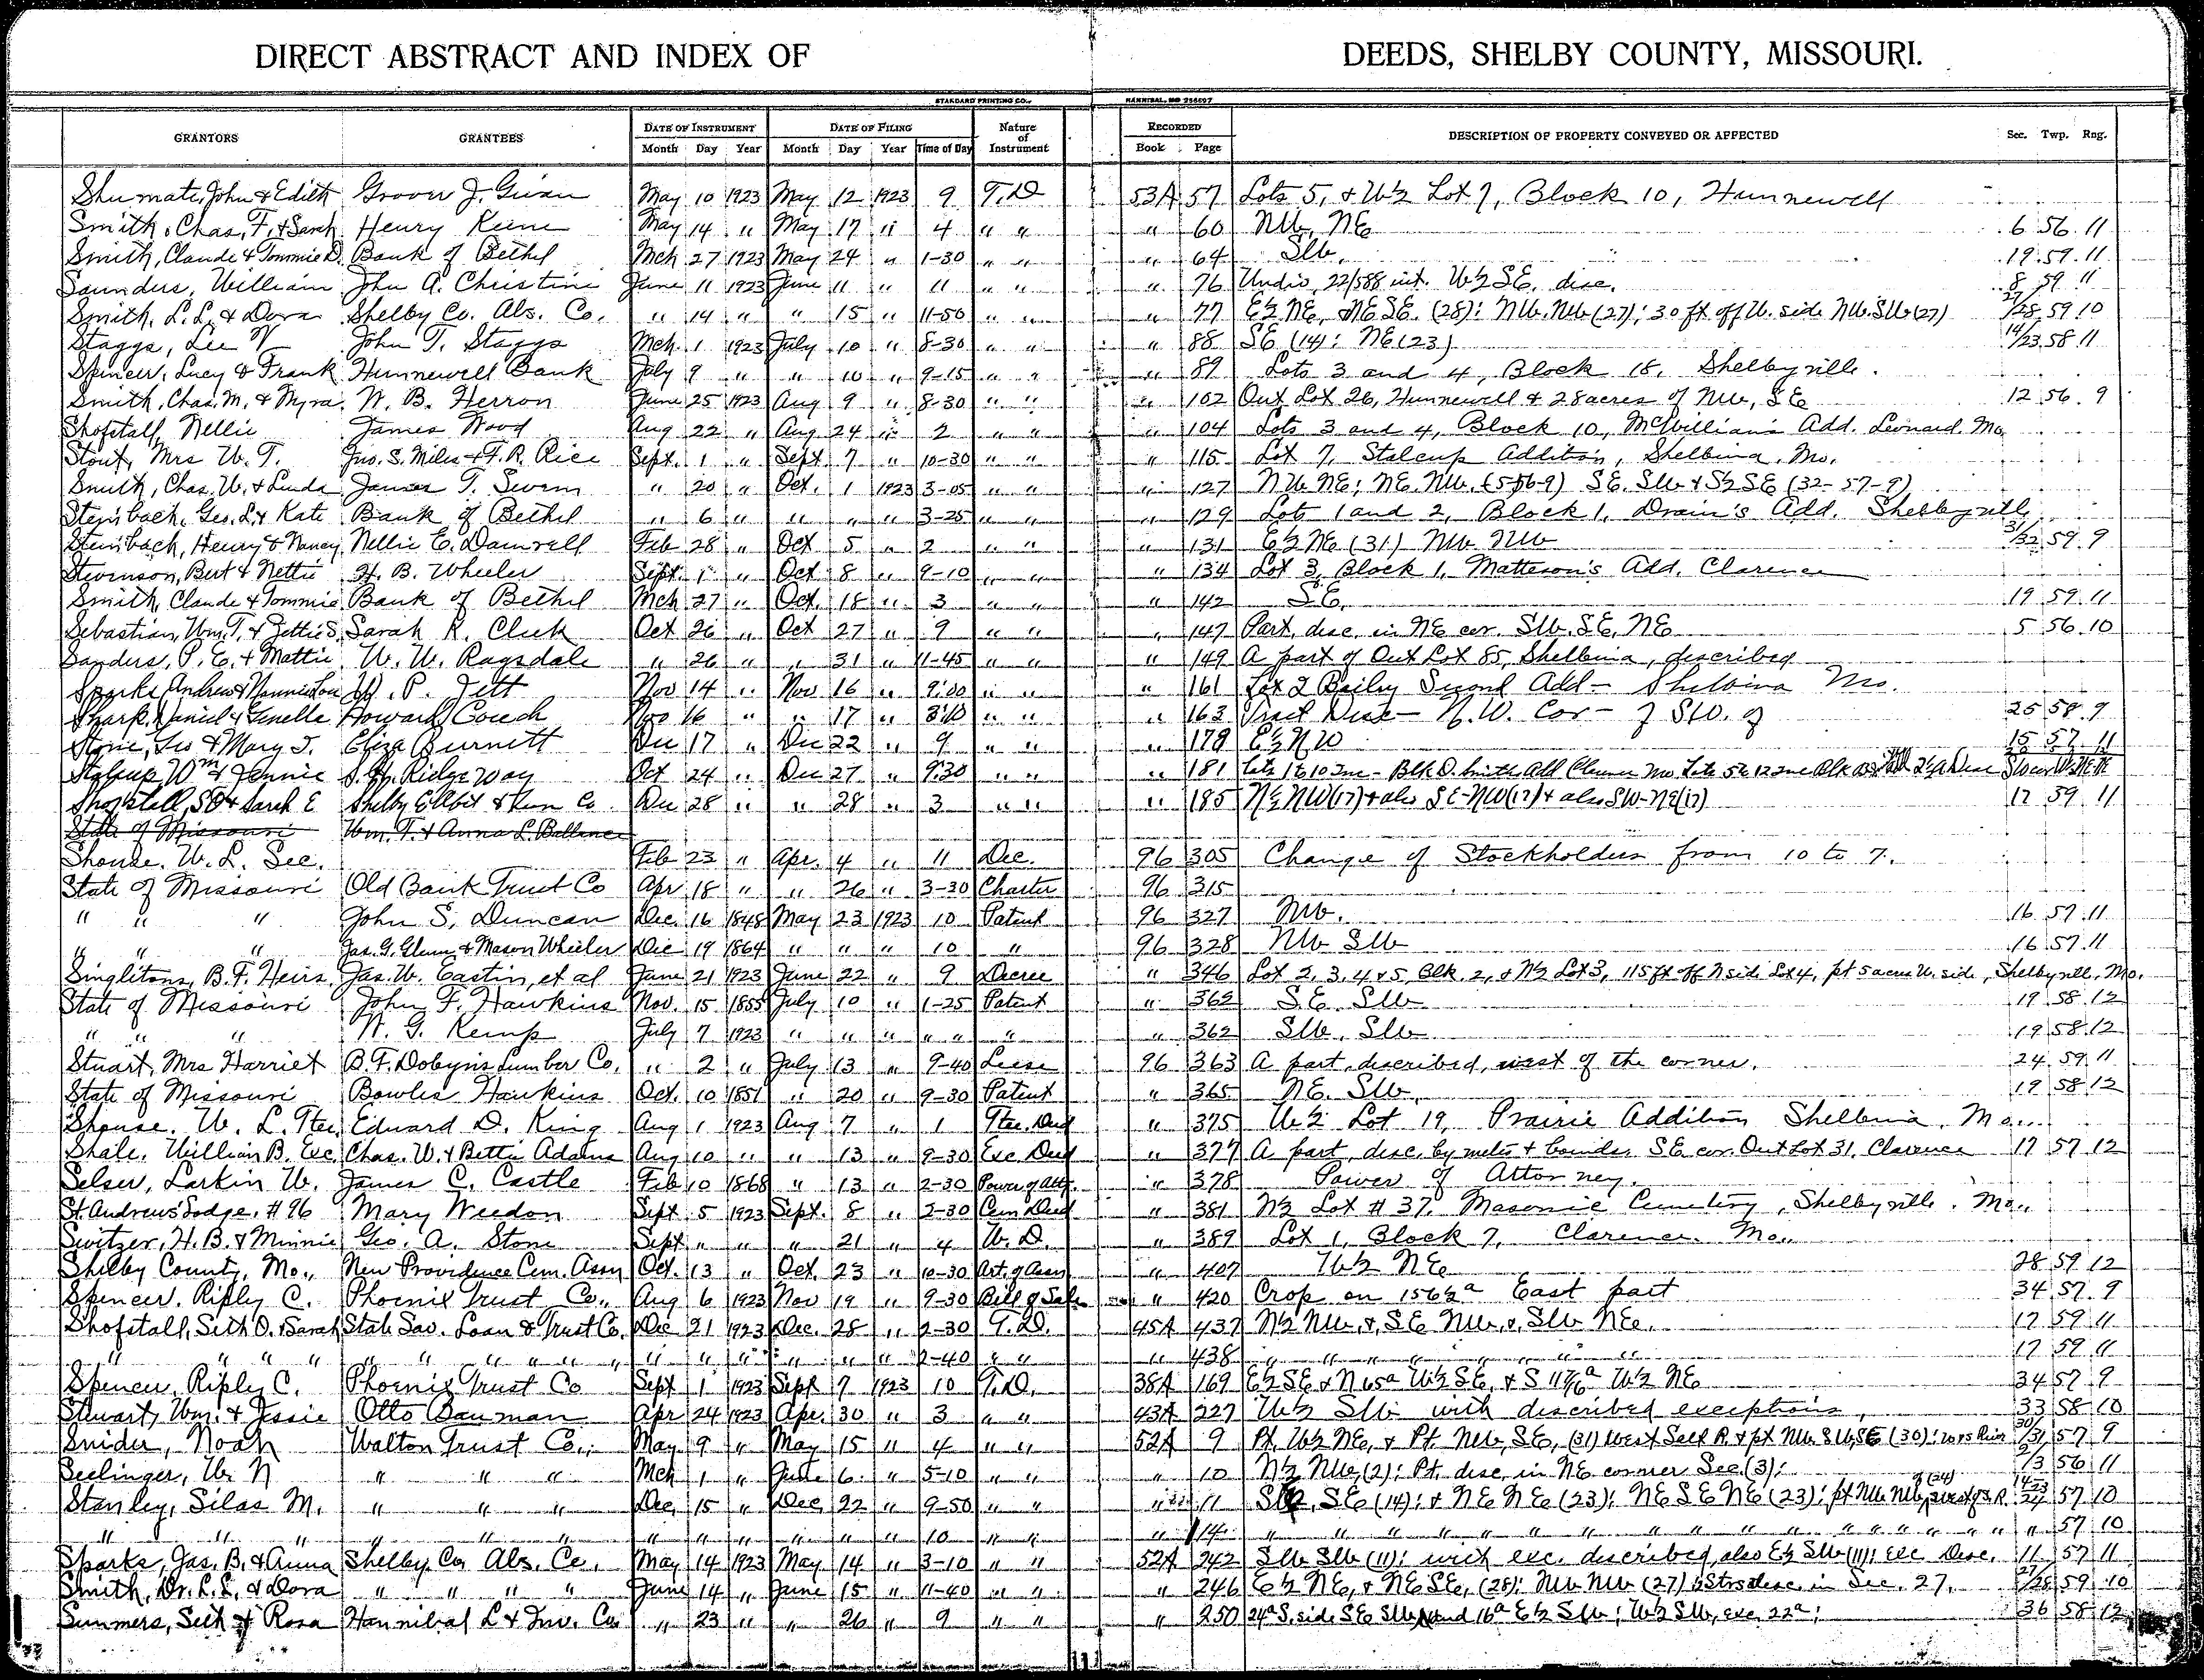 DIRECT ABSTRACT AND INDEX OF DEEDS, SHELBY COUNTY, MISSOURI.
STANDARD PRINTING CO., HANNIBAL, MO 256697
GRANTORS GRANTEES DATE OF INSTRUMENT DATE OF FILING Nature of Instrument RECORDED DESCRIPTION OF PROPERTY CONVEYED OR AFFECTED Sec. Twp. Rng.
Month Day Year Month Day Year Time of Day Book Page
Shumate, John & Edith Grover J. Givan May 10 1923 May 12 1923 9 T.D 53A 57 Lots 5, & W½ Lot 7, Block 10, Hunnewell
Smith, Chas. F. & Sarah Henry Keene May 14 " May 17 " 4 " " " 60 NW, NE 6 56 11
Smith, Claude & Tommie D. Bank of Bethel Mch 27 1923 May 24 " 1-30 " " " 64 SW. 19 59 11
Saunders, William John A. Christine June 11 1923 June 11 " 11 " " " 76 Undiv. 22/588 int. W½ SE. disc. 8 59 11
Smith, L. L. & Dora Shelby Co. Abs. Co. " 14 " " 15 " 11-50 " " " 77 E½ NE, & NE SE. (28); NW. NW (27); 30 ft off W. side NW. SW (27) 27/28 59 10
Staggs, Lee V John T. Staggs Mch. 1 1923 July 10 " 8-30 " " " 88 SE (14); NE (23) 14/23 58 11
Spencer, Lucy & Frank Hunnewell Bank July 9 " " 10 " 9-15 " " " 89 Lots 3 and 4, Block 18, Shelbyville.
Smith, Chas. M. & Myra. W. B. Herron June 25 1923 Aug 9 " 8-30 " " " 102 Out Lot 26, Hunnewell & 28 acres of NW, SE 12 56 9
Shofstall, Nellie James Wood Aug 22 " Aug 24 " 2 " " " 104 Lots 3 and 4, Block 10, McWilliam's Add. Leonard Mo
Stout, Mrs W. T. Jno. S. Miles & F. R. Rice Sept. 1 " Sept 7 " 10-30 " " " 115 Lot 7, Stalcup Addition, Shelbina, Mo.
Smith, Chas. W. & Linda James T. Swem " 20 " Oct. 1 1923 3-05 " " " 127 NW NE; NE. NW. (5-56-9) SE. SW & S½ SE (32-57-9)
Steinbach, Geo. L. & Kate Bank of Bethel " 6 " " " " 3-25 " " " 129 Lots 1 and 2, Block 1, Drain's Add. Shelbyville
Steinbach, Henry & Nancy Nellie E. Damrell Feb 28 " Oct 5 " 2 " " " 131 E½ NE (31) NW NW 31/32 59 9
Stevenson, Bert & Nettie H. B. Wheeler Sept. 1 " Oct 8 " 9-10 " " " 134 Lot 3, Block 1, Matteson's Add. Clarence
Smith, Claude & Tommie Bank of Bethel Mch 27 " Oct. 18 " 3 " " " 142 SE. 19 59 11
Sebastian, Wm. T. & Zettie S. Sarah K. Cluk Oct 26 " Oct 27 " 9 " " " 147 Part, disc. in NE cor. SW. SE. NE 5 56 10
Sanders, P. E. & Mattie W. W. Ragsdale " 26 " " 31 " 11-45 " " " 149 A part of Out Lot 85, Shelbina, described
Sparks, Andrew & Nannie Lou W. P. Jett Nov 14 " Nov 16 " 9:00 " " " 161 Lot 2 Bailey Second Add - Shelbina Mo.
Sharp, Daniel & Genella Howard Couch Nov 16 " " 17 " 3:10 " " " 163 Tract Desc - N.W. Cor - of SW. of 25 58 9
Stone, Geo & Mary J. Eliza Burnett Dec 17 " Dec 22 " 9 " " " 179 E½ NW 15 57 11
Stalcup, Wm & Jennie S. H. Ridgeway Oct 24 " Dec 27 " 9:30 " " " 181 Lots 1 to 10 Inc - Blk D. Smith Add Clarence Mo Lots 5 to 12 Inc
Shofstall, S O & Sarah E Shelby Co Abst & Loan Co Dec 28 " " 28 " 3 " " " 185 N½ NW (17) & also SE-NW (17) & also SW-NE (17) 17 59 11
State of Missouri Wm. T. & Anna L. Ballence
Shouse. W. L. Sec. Feb 23 " Apr. 4 " 11 Dec. 96 305 Change of Stockholders from 10 to 7.
State of Missouri Old Bank Trust Co Apr 18 " " 26 " 3-30 Charter 96 315
" " " John S. Duncan Dec. 16 1848 May 23 1923 10 Patent 96 327 NW. 16 57 11
" " " Jas. G. Glenn & Mason Wheeler Dec 19 1864 " " " 10 " 96 328 NW SW 16 57 11
Singleton, B. F. Heirs. Jas. W. Eastin, et al June 21 1923 June 22 " 9 Decree " 346 Lot 2, 3, 4 & 5, Blk. 2, & N½ Lot 3, 115 ft off N side Lot 4, pt 5 acres W. side, Shelbyville, Mo.
State of Missouri John F. Hawkins Nov. 15 1855 July 10 " 1-25 Patent " 362 SE. SW 19 58 12
" " " W. G. Kemp July 7 1923 " " " " " " " 362 SW. SW 19 58 12
Stuart, Mrs Harriet B. F. Dobyns Lumber Co. " 2 " July 13 " 9-40 Lease 96 363 A part, described, west of the corner. 24 59 11
State of Missouri Bowles Hawkins Oct. 10 1851 " 20 " 9-30 Patent " 365 NE. SW. 19 58 12
Shouse. W. L. Ttee Edward D. King Aug 1 1923 Aug 7 " 1 Ttee. Deed " 375 W½ Lot 19, Prairie Addition Shelbina, Mo.
Shale, William B. Exc. Chas. W. & Bettie Adams Aug 10 " " 13 " 9-30 Exc. Deed " 377 A part, desc. by metes & bounds SE cor. Out Lot 31, Clarence 17 57 12
Selser, Larkin W. James C. Castle Feb 10 1868 " 13 " 2-30 Power of Atty. " 378 Power of Attorney.
St. Andrews Lodge. #96 Mary Weedon Sept 5 1923 Sept. 8 " 2-30 Cem Deed " 381 N½ Lot #37, Masonic Cemetery, Shelbyville. Mo.
Switzer, H. B. & Minnie Geo. A. Stone Sept " " " 21 " 4 W. D. " 389 Lot 1, Block 7, Clarence. Mo.
Shelby County, Mo., New Providence Cem. Assn Oct. 13 " Oct. 23 " 10-30 Art. of Assn " 407 W½ NE 28 59 12
Spencer, Ripley C. Phoenix Trust Co., Aug 6 1923 Nov 19 " 9-30 Bill of Sale " 420 Crop on 156½ a East part 34 57 9
Shofstall, Seth O. & Sarah State Sav. Loan & Trust Co. Dec 21 1923 Dec. 28 " 2-30 T. D. 45A 437 N½ NW, &, SE NW, &, SW NE. 17 59 11
" " " " " " " " " " " " " " " " 2-40 " " " 438 " " " " " " " " 17 59 11
Spencer, Ripley C. Phoenix Trust Co Sept 1 1923 Sept 7 1923 10 T. D. 38A 169 E½ SE & N 65a W½ SE, & S W½ NE 34 57 9
Stewart, Wm. & Jessie Otto Bauman Apr 24 1923 Apr. 30 " 3 " " 43A 227 W½ SW with described exceptions, 33 58 10
Snider, Noah Walton Trust Co., May 9 " May 15 " 4 " " 52A 9 Pt. W½ NE, & Pt. NW, SE, (31) West Salt R. & pt NW SW, SE (30); 30/31 57 9
Seelinger, W. N " " " Mch 1 " June 6 " 5-10 " " " 10 N½ NW, (2); Pt. disc. in NE corner Sec. (3); 2/3 56 11
Stanley, Silas M. " " " Dec. 15 " Dec. 22 " 9-50 " " " 11 S½, SE (14); & NE NE (23); NE SE NE (23); pt NW NW, west of S. R. (24) 14-23/24 57 10
" " " " " " " " " " " " 10 " " " 14 " " " " " " " " " " " " 57 10
Sparks, Jas. B. & Anna Shelby Co, Abs. Co. May 14 1923 May 14 " 3-10 " " 52A 242 SW SW (11); with exc. described, also E½ SW (11); exc Desc. 11 57 11
Smith, Dr. L. L. & Dora " " " " June 14 " June 15 " 11-40 " " " 246 E½ NE, & NE SE, (28); NW NW (27) in Sec. 27. 27/28 59 10
Summers, Seth & Rosa Hannibal L & Inv. Co. " 23 " " 26 " 9 " " " 250 24a S. side SE SW, and 16a E½ SW; W½ SW, exc. 22a; 36 58 12